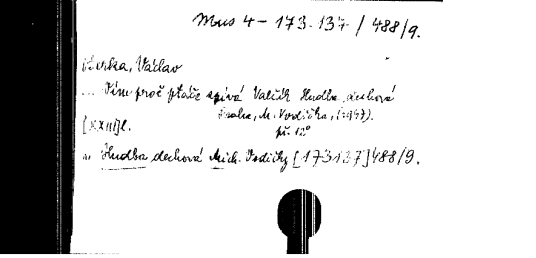 Mus 4 - 173.137 / 488/9.
Václav
... Vím proč ptáče zpívá Valčík Hudba dechová
Praha, M. Vodička, (1947).
[XXIII]l. př. 12°
" Hudba dechová Mich. Vodičky [173137] 488/9.